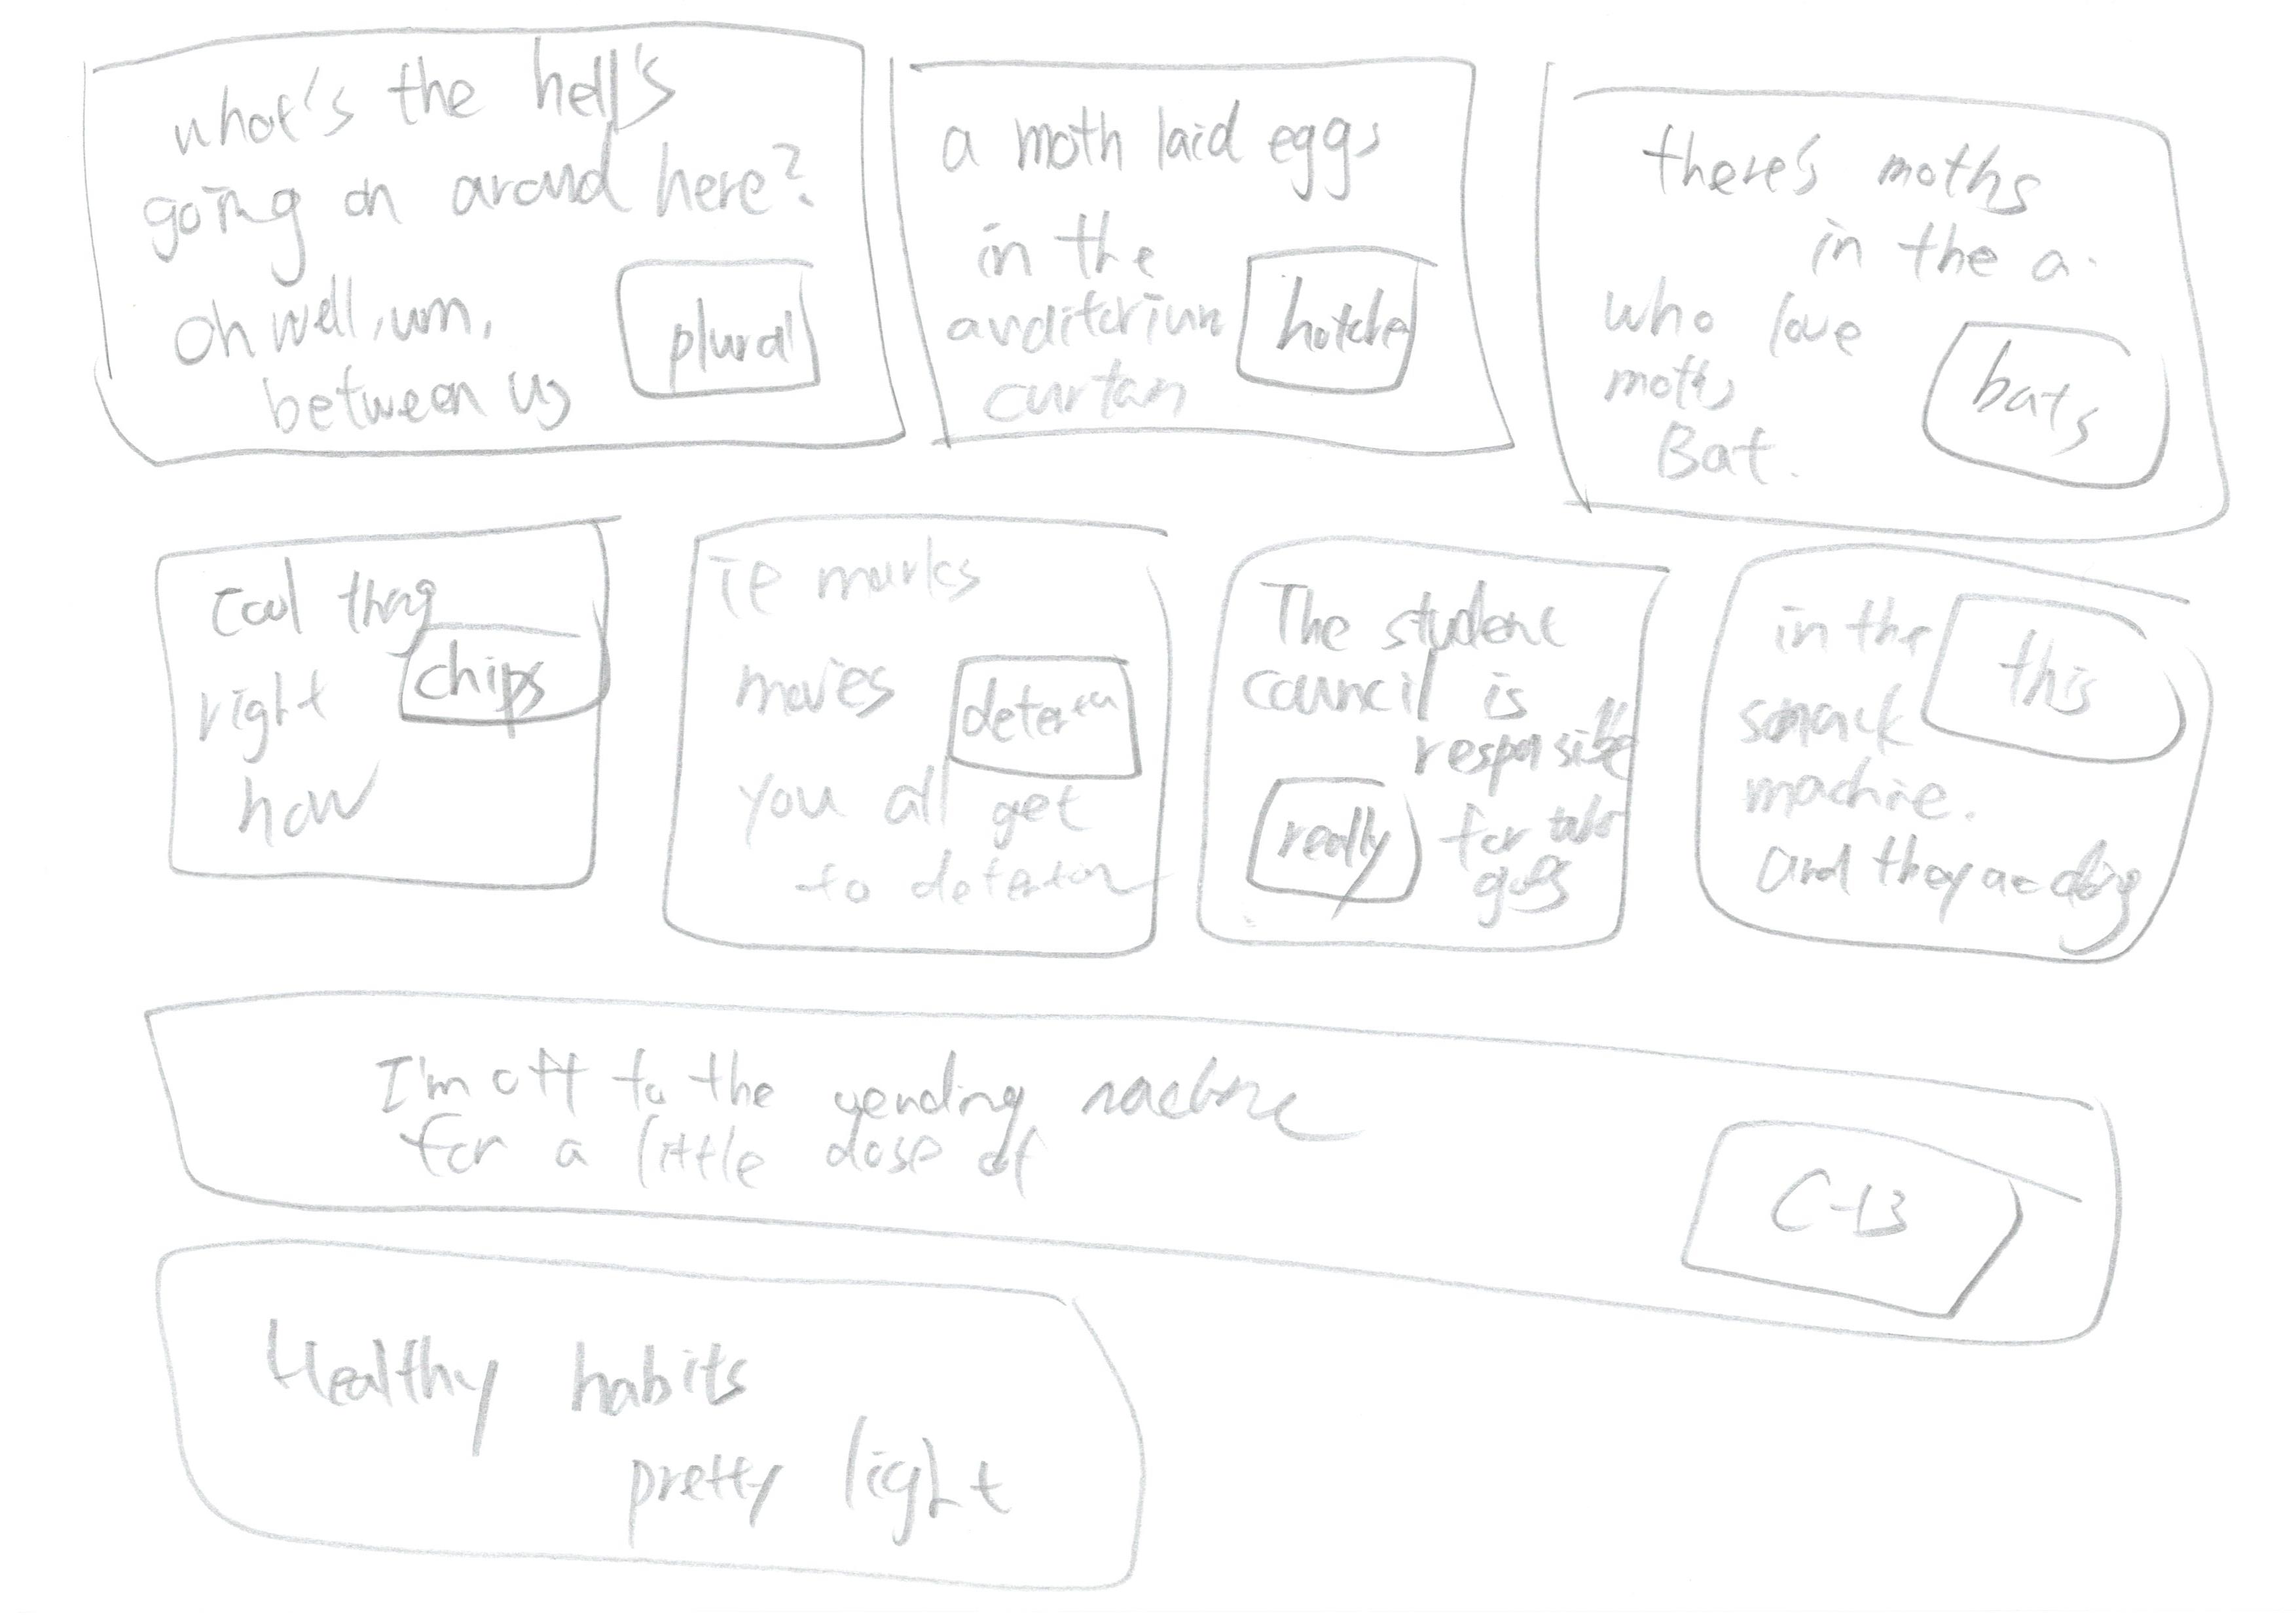 what's the hell's
going on around here?
oh well, um,
between us
plural
a moth laid eggs
in the
auditorium
curtain
there's moths
in the a.
who love
moths
Bat.
bats
thing
right
chips
how
marks
movies
you all get
to
The student
council is
responsible
really
for
in the
this
snack
machine.
and they
I'm off to the vending machine
for a little dose of
C-13
Healthy habits
pretty light